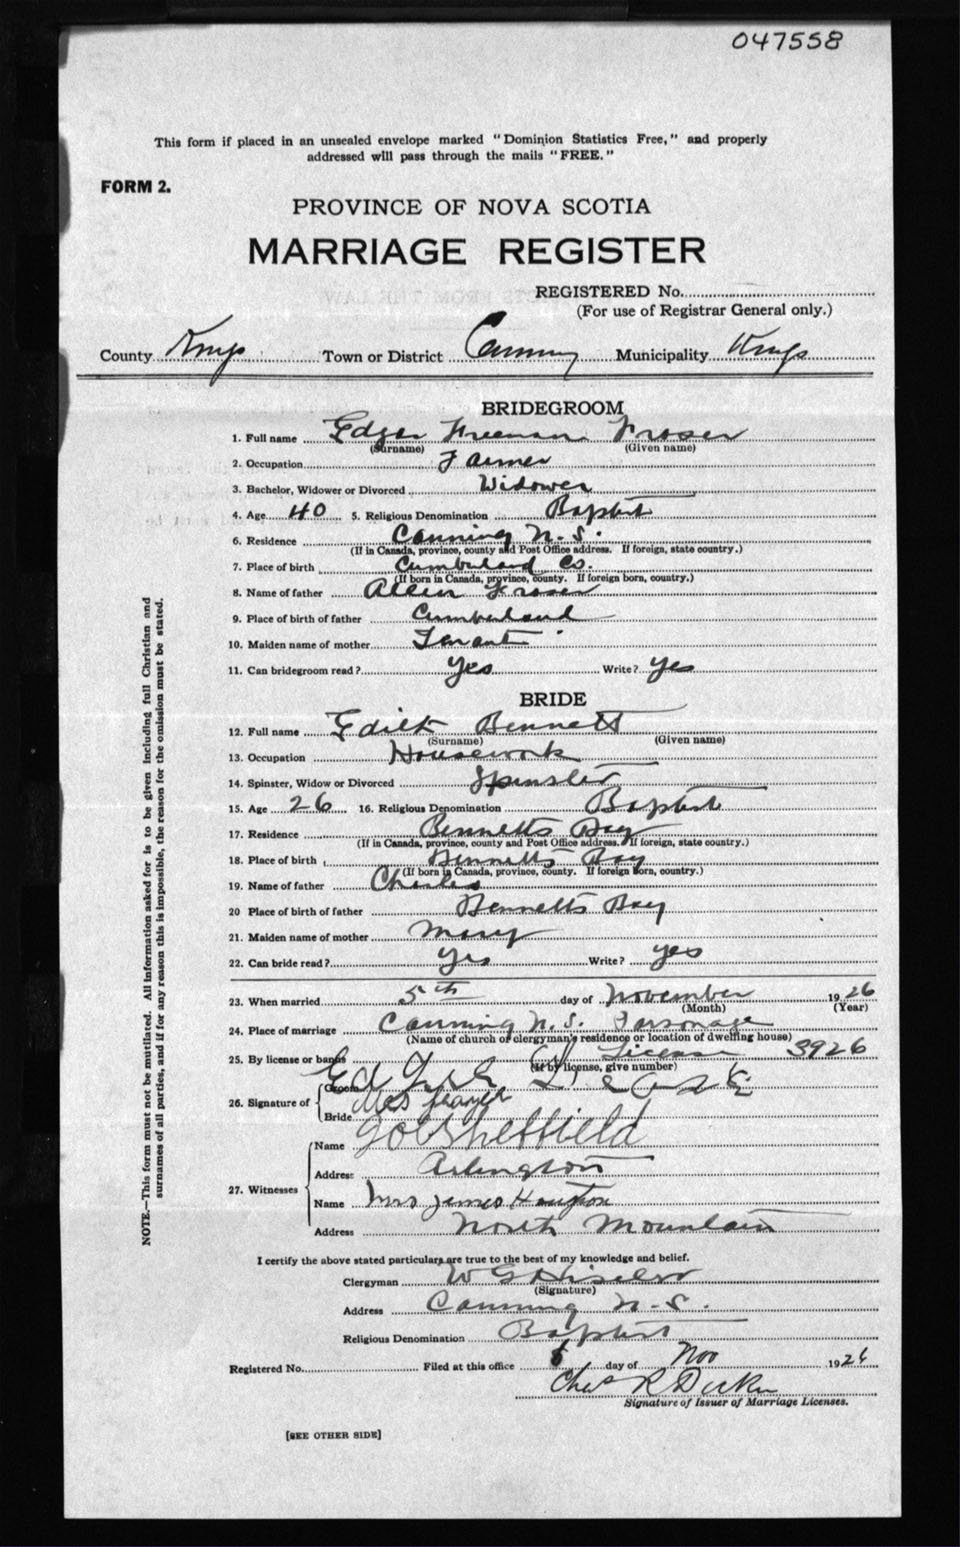 047558
This form if placed in an unsealed envelope marked "Dominion Statistics Free," and properly
addressed will pass through the mails "FREE."
FORM 2.
PROVINCE OF NOVA SCOTIA
MARRIAGE REGISTER
REGISTERED No.
(For use of Registrar General only.)
County Kings Town or District Canning Municipality Kings
BRIDEGROOM
1. Full name Edgar Freeman Fraser
(Surname) (Given name)
2. Occupation Farmer
3. Bachelor, Widower or Divorced Widower
4. Age 40 5. Religious Denomination Baptist
6. Residence Canning N.S.
(If in Canada, province, county and Post Office address. If foreign, state country.)
7. Place of birth Cumberland Co.
(If born in Canada, province, county. If foreign born, country.)
8. Name of father Allen Fraser
9. Place of birth of father Cumberland
10. Maiden name of mother
11. Can bridegroom read? Yes Write? Yes
BRIDE
12. Full name Edith Bennett
(Surname) (Given name)
13. Occupation Housework
14. Spinster, Widow or Divorced Spinster
15. Age 26 16. Religious Denomination Baptist
17. Residence Bennetts Bay
(If in Canada, province, county and Post Office address. If foreign, state country.)
18. Place of birth Bennetts Bay
(If born in Canada, province, county. If foreign born, country.)
19. Name of father Charles
20 Place of birth of father Bennetts Bay
21. Maiden name of mother Mary
22. Can bride read? Yes Write? yes
23. When married 5th day of November 1926
(Month) (Year)
24. Place of marriage Canning N.S. Parsonage
(Name of church or clergyman's residence or location of dwelling house)
25. By license or banns License 3926
(If by license, give number)
26. Signature of
Groom
Bride
27. Witnesses
Name Sheffield
Address Arlington
Name Mrs James Houghton
Address North Mountain
I certify the above stated particulars are true to the best of my knowledge and belief.
Clergyman W G
(Signature)
Address Canning N.S.
Religious Denomination Baptist
Registered No. Filed at this office day of Nov 1926
Chas R
Signature of Issuer of Marriage Licenses.
[SEE OTHER SIDE]
NOTE.—This form must not be mutilated. All information asked for is to be given including full Christian and
surnames of all parties, and if for any reason this is impossible, the reason for the omission must be stated.